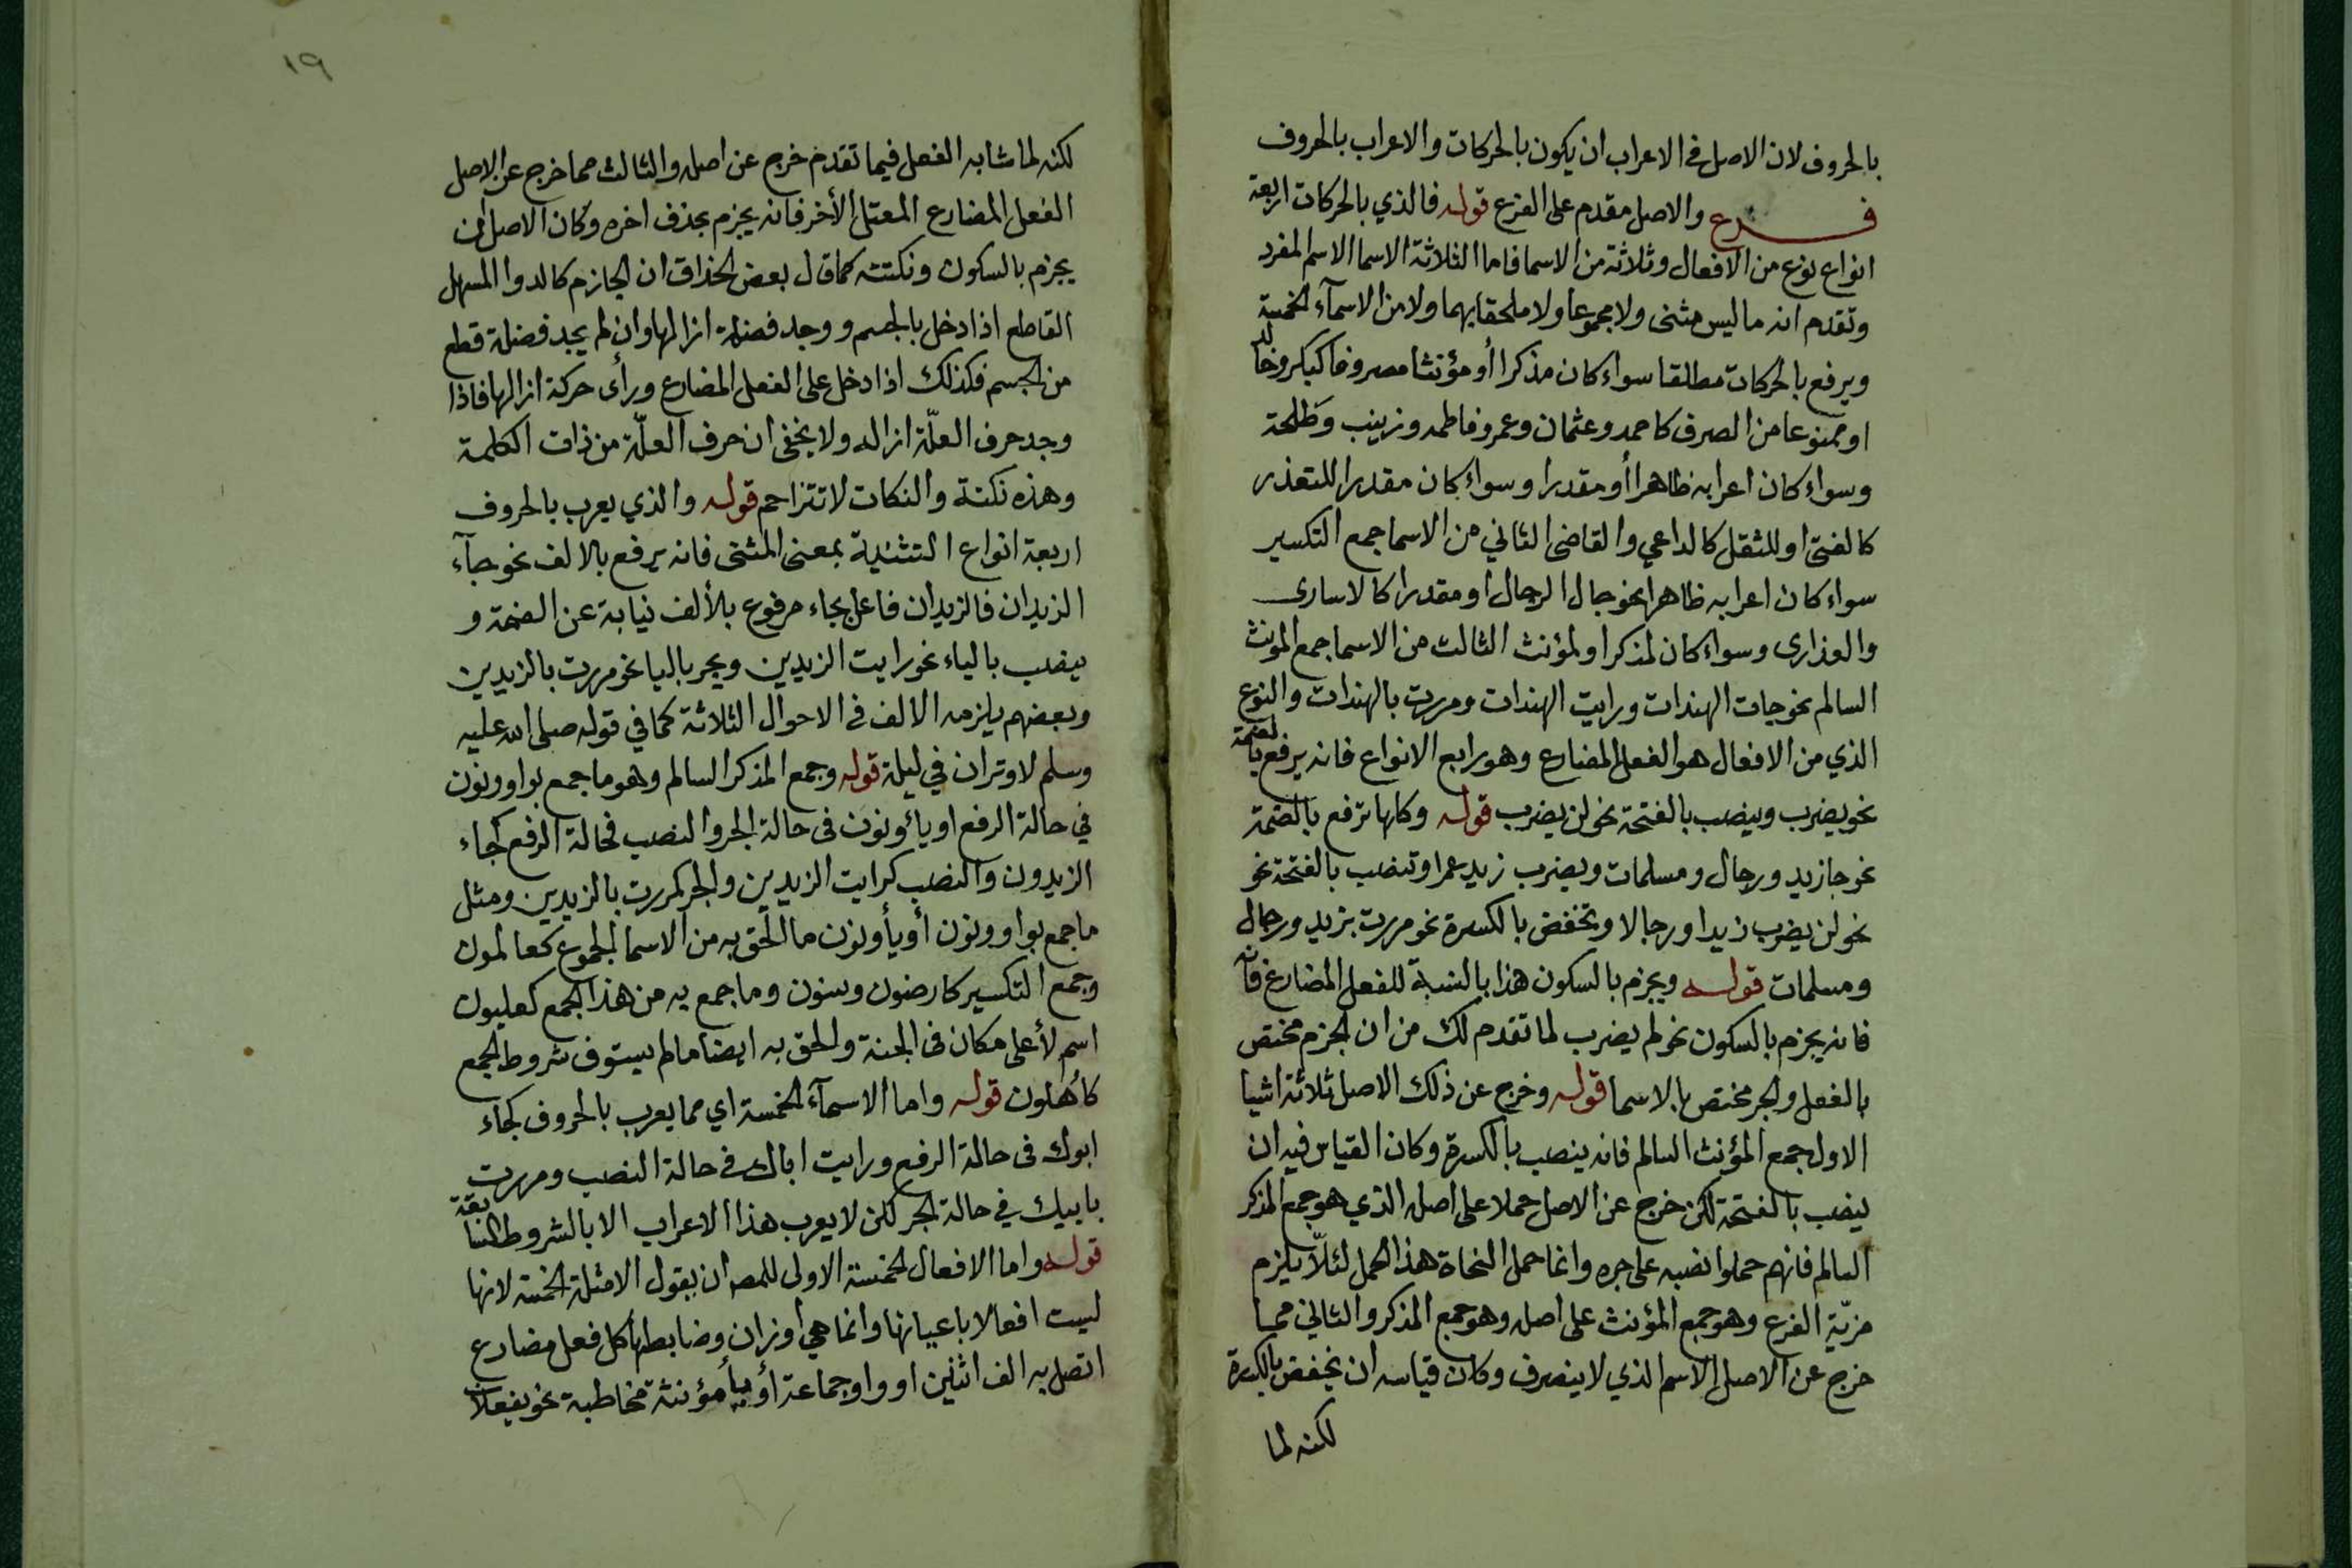 بالحروف لان الاصل في الاعراب ان يكون بالحركات والاعراب بالحروف
فرع والاصل مقدم على الفرع قوله فالذي بالحركات اربعة
انواع نوع من الافعال وثلاثة من الاسما فاما الثلاثة الاسما الاسم المفرد
وتقدم انه ما ليس مثنى ولا مجموعا ولا ملحقا بهما ولا من الاسمآء الخمسة
ويرفع بالحركات مطلقا سواء كان مذكرا أو مؤنثا مصروفا كبكر وخالد
او ممنوعا من الصرف كاحمد وعثمان وعمر وفاطمه وزينب وطلحة
وسواء كان اعرابه ظاهرا أو مقدرا وسواء كان مقدرا للتعذر
كالفتى او للثقل كالداعي والقاضى الثاني من الاسما جمع التكسير
سواء كان اعرابه ظاهرا نحو جال الرجال او مقدرا كالاسارى
والعذارى وسواء كان لمذكر او لمؤنث الثالث من الاسما جمع المونث
السالم نحو جات الهندات ورايت الهندات ومررت بالهندات والنوع
الذي من الافعال هو الفعل المضارع وهو رابع الانواع فانه يرفع بالضمة
نحو يضرب وينصب بالفتحة نحو لن يضرب قوله وكلها ترفع بالضمة
نحو جا زيد ورجال ومسلمات ويضرب زيد عمرا وتنصب بالفتحة نحو
نحو لن يضرب زيدا ورجالا وتخفض بالكسرة نحو مررت بزيد ورجال
ومسلمات قوله ويجزم بالسكون هذا بالنسبة للفعل المضارع فانه
فانه يجزم بالسكون نحو لم يضرب لما تقدم لك من ان الجزم مختص
بالفعل والجر مختص بالاسما قوله وخرج عن ذلك الاصل ثلاثة اشيا
الاول جمع المؤنث السالم فانه ينصب بالكسرة وكان القياس فيه ان
ينصب بالفتحة لكن خرج عن الاصل حملا على اصله الذي هو جمع المذكر
السالم فانهم حملوا نصبه على جره وانما حمل النحاة هذا الحمل لئلّا يلزم
مزيّة الفرع وهو جمع المؤنث على اصله وهو جمع المذكر والثاني مما
خرج عن الاصل الاسم الذي لا ينصرف وكان قياسه ان يخفض بالكسرة
لكنه لما
١٩
لكنه لما شابه الفعل فيما تقدم خرج عن اصله والثالث مما خرج عن الاصل
الفعل المضارع المعتل الأخر فانه يجزم بحذف اخره وكان الاصل ان
يجزم بالسكون ونكتته كما قال بعض الحذاق ان الجازم كالدوا المسهل
القاطع اذا دخل بالجسم ووجد فضلة ازالها وان لم يجد فضلة قطع
من الجسم فكذلك اذا دخل على الفعل المضارع ورأى حركة ازالها فاذا
وجد حرف العلّة ازاله ولا يخفى ان حرف العلّة من ذات الكلمة
وهذه نكتة والنكات لا تتزاحم قوله والذي يعرب بالحروف
اربعة انواع التثنية بمعنى المثنى فانه يرفع بالالف نحو جآء
الزيدان فالزيدان فاعل بجاء مرفوع بالألف نيابة عن الضمة و
ينصب بالياء نحو رايت الزيدين ويجر بالياء نحو مررت بالزيدين
وبعضهم يلزمه الالف في الاحوال الثلاثة كما في قوله صلى الله عليه
وسلم لا وتران في ليلة قوله وجمع المذكر السالم وهو ما جمع بواو ونون
في حالة الرفع او يأ ونون في حالة الجر والنصب فحالة الرفع كجاء
الزيدون والنصب كرايت الزيدين والجر كمررت بالزيدين ومثل
ما جمع بواو ونون أو يأ ونون ما الحق به من الاسما الجموع كعالمون
وجمع التكسير كارضون وسنون وما جمع به من هذا الجمع كعليون
اسم لأعلى مكان في الجنة والحق به ايضا ما لم يستوف شروط الجمع
كأهلون قوله واما الاسمآء الخمسة اي مما يعرب بالحروف كجاء
ابوك في حالة الرفع ورايت اباك في حالة النصب ومررت
بابيك في حالة الجر لكن لا يعرب هذا الاعراب الا بالشروط السابقة
قوله واما الافعال الخمسة الاولى للمص ان يقول الامثلة الخمسة لانها
ليست افعالا باعيانها وانما هي أوزان وضابطها كل فعل مضارع
اتصل به الف اثنين او واو جماعة أو يأ مؤنثة مخاطبة نحو يفعلان